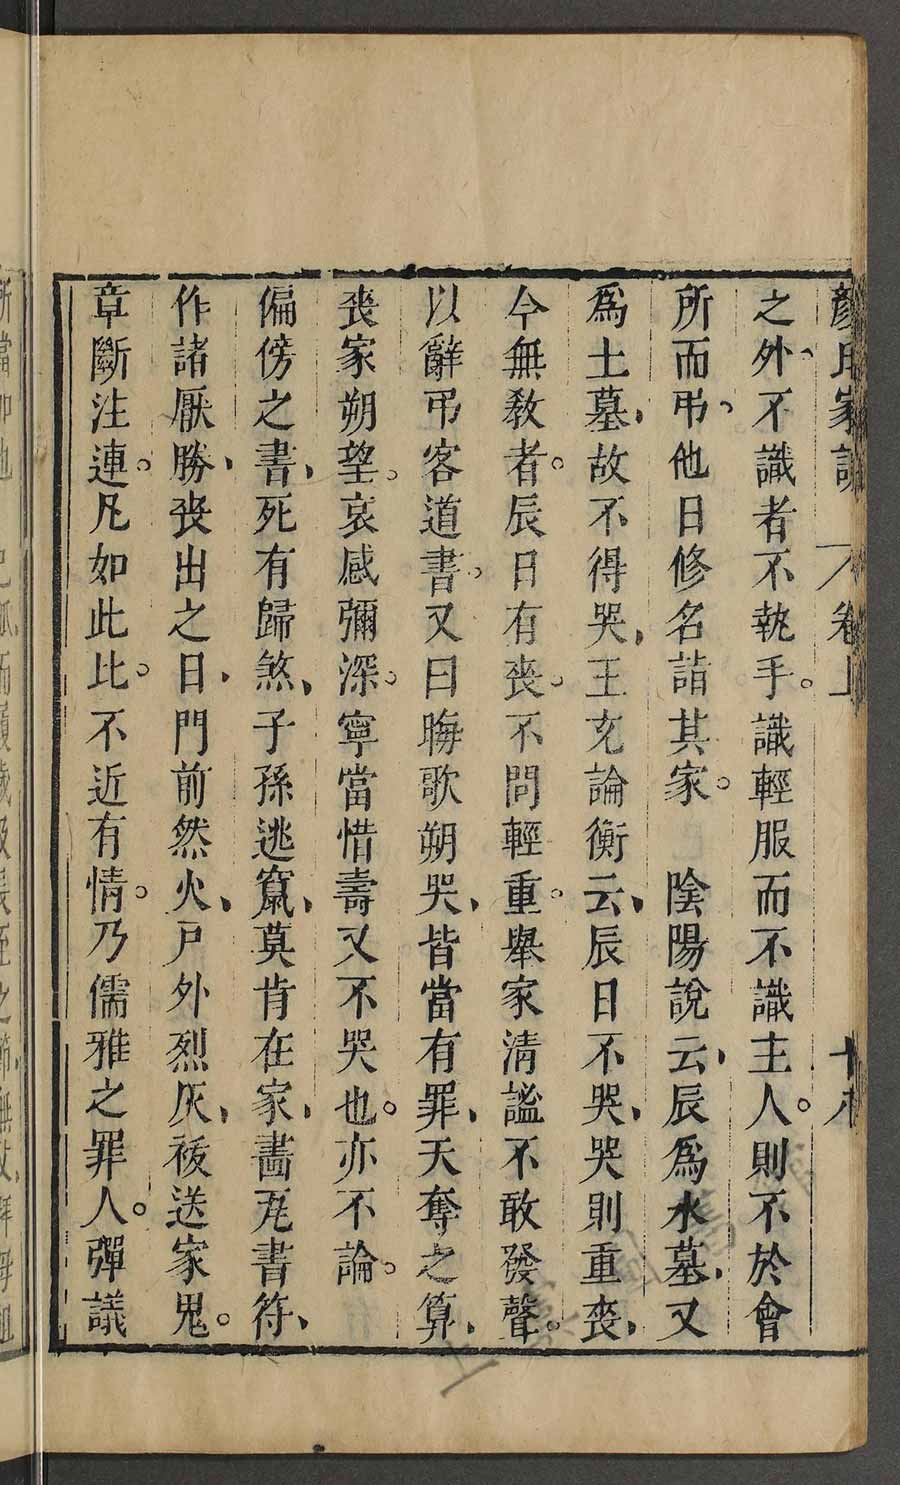 顏氏家訓 卷上
之外、不識者不執手。識輕服而不識主人。則不於會
所而弔、他日修名詣其家。 陰陽說云、辰爲水墓、又
爲土墓、故不得哭、王充論衡云、辰日不哭、哭則重喪、
今無教者。辰日有喪。不問輕重。舉家清謐不敢發聲。
以辭弔客道書。又曰晦歌朔哭、皆當有罪、天奪之算、
喪家朔望。哀感彌深。寧當惜壽又不哭也。亦不論。
偏傍之書、死有歸煞、子孫逃竄、莫肯在家、畵瓦書符、
作諸厭勝、喪出之日、門前然火、戸外烈灰、祓送家鬼。
章斷注連。凡如此比。不近有情。乃儒雅之罪人。彈議